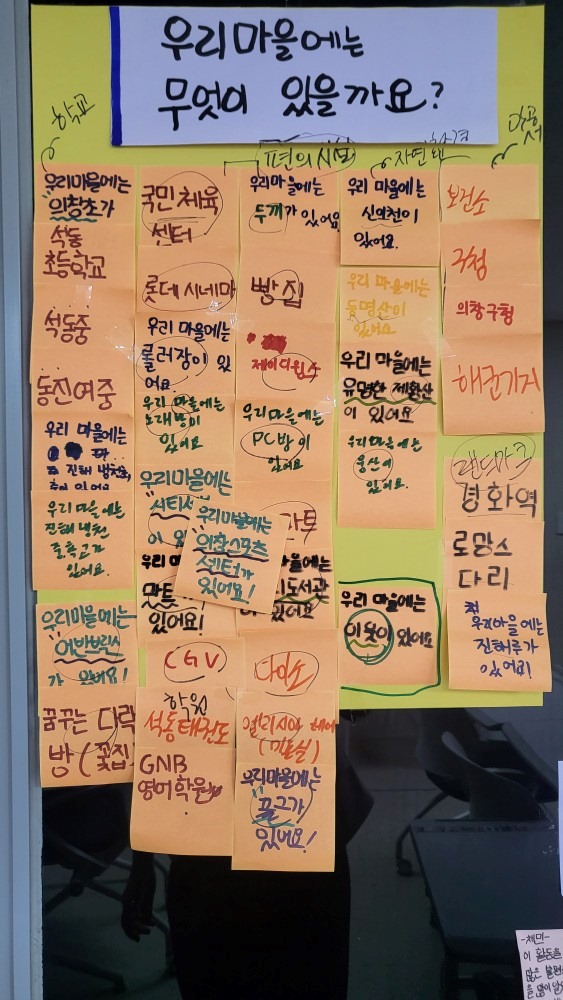 우리 마을에는
무엇이 있을까요?
학교
편의시설
자연환경
관공서
우리마을에는
의창초가
석동
초등학교
석동중
동진여중
우리 마을에는
진해 냉천초,
우리 마을에는
진해 냉천
중학교가
있어요.
우리마을에는
어반브릭스
가 있어요!
꿈꾸는 다락
방 (꽃집
국민체육
센터
롯데시네마
우리 마을에는
롤러장이 있
어요.
우리 마을에는
노래방이
있어요
우리마을에는
우리마을에는
의창스포츠
센터가
있어요!
있어요!
CGV
학원
석동태권도
GNB
영어학원
우리마을에는
두끼가 있어요
빵집
제이디윈스
우리 마을에는
PC방이
있어요
마을에는
도서관
있어요
다이소
엘리시아 헤어
(미용실)
우리마을에는
있어요!
우리 마을에는
신의천이
있어요.
우리 마을에는
동명산이
있어요
우리 마을에는
유명산 제황산
이 있어요
우리 마을에는
웅산이
있어요.
우리 마을에는
이웃이 있어요
보건소
구청
의창구청
해군기지
랜드마크
경화역
로망스
다리
우리마을에는
진해루가
있어요!
-체민-
이 활동을